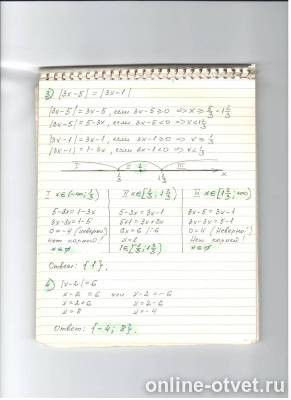 3) |3x-5| = |3x-1|
|3x-5| = 3x-5, если 3x-5≥0 => x ≥ 5/3 = 1 2/3
|3x-5| = 5-3x, если 3x-5<0 => x < 1 2/3
|3x-1| = 3x-1, если 3x-1≥0 => x ≥ 1/3
|3x-1| = 1-3x, если 3x-1<0 => x < 1/3
I II III
1/3 1 2/3 x
I x∈(-∞; 1/3) II x∈[1/3; 1 2/3) III x∈[1 2/3; +∞)
5-3x = 1-3x 5-3x = 3x-1 3x-5 = 3x-1
3x-3x = 1-5 5+1 = 3x+3x 3x-3x = 5-1
0 = -4 (неверно) 6x = 6 |:6 0 = 4 (неверно)
Нет корней! x = 1 Нет корней!
x∈∅ 1∈[1/3; 1 2/3) x∈∅
Ответ: {1}.
4) |x-2| = 6
x-2 = 6 или x-2 = -6
x = 2+6 x = 2-6
x = 8 x = -4
Ответ: {-4; 8}.
online-otvet.ru